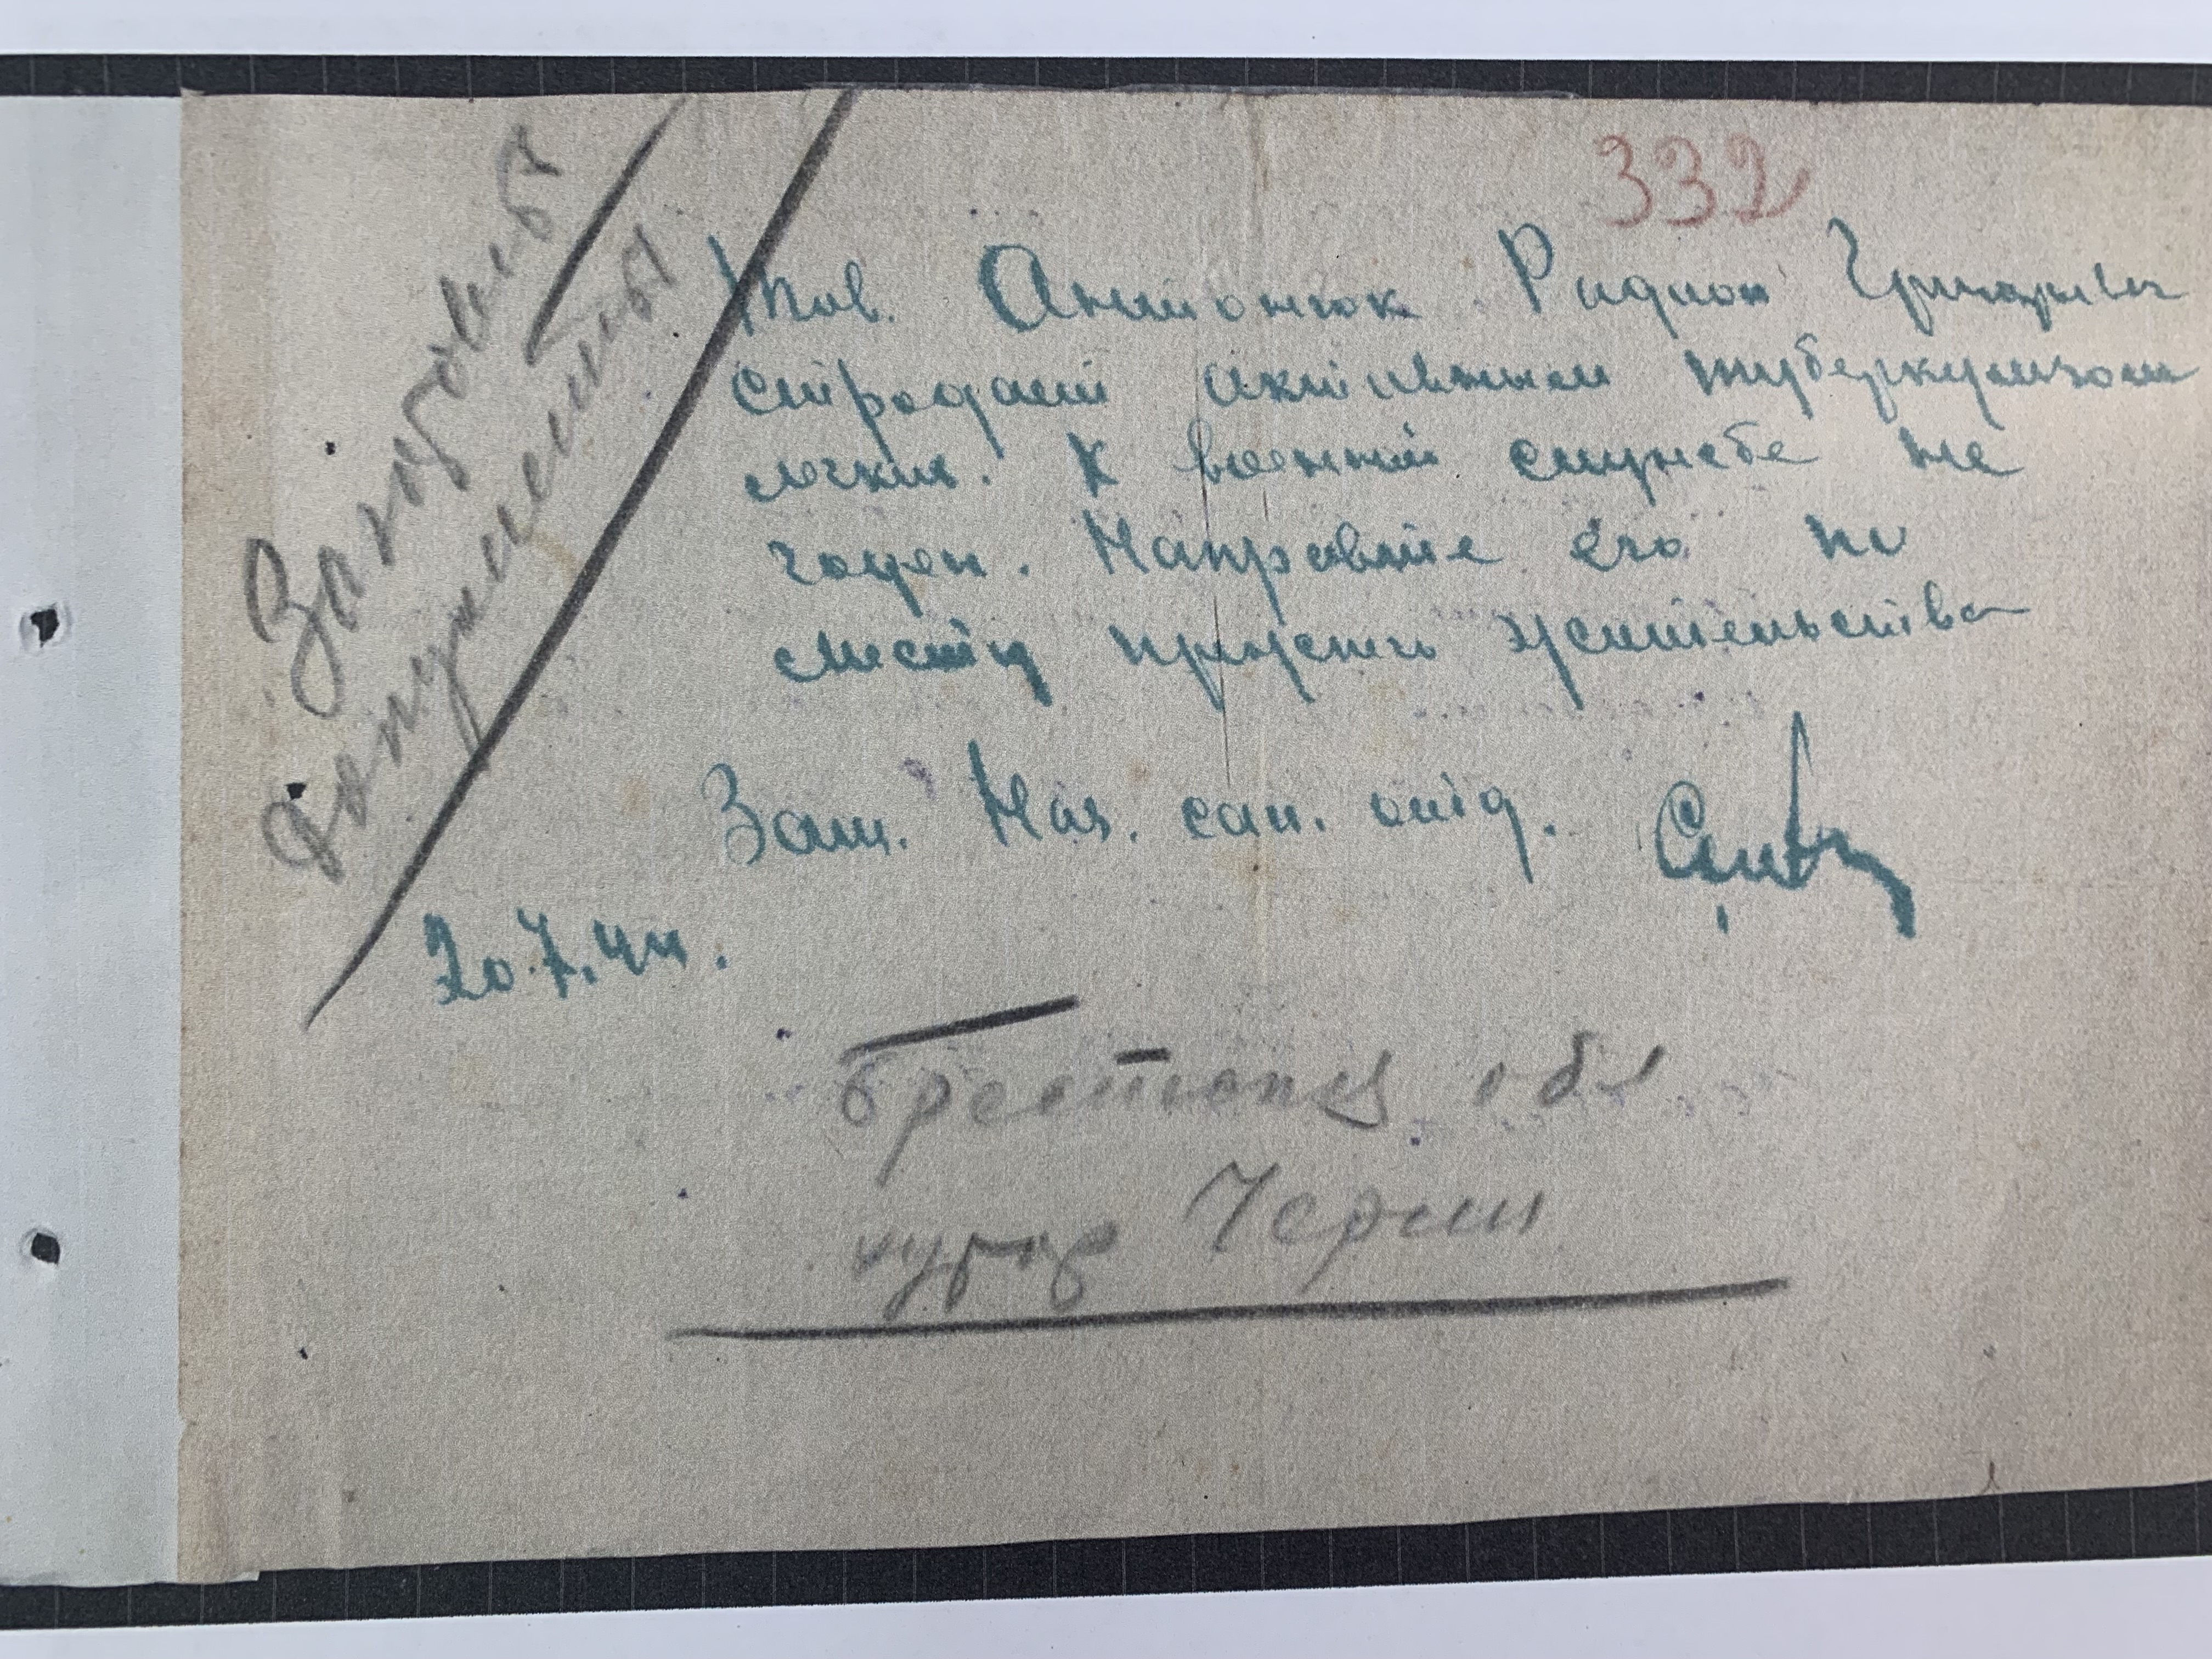 332
Тов. Антонюк Радион Григорьевич
страдает активным туберкулезом
легких. К военной службе не
годен. Направьте его по
месту прежнего жительства
Зам. Нач. сан. отд.
20.7.44.
Брестская обл
хутор Черни